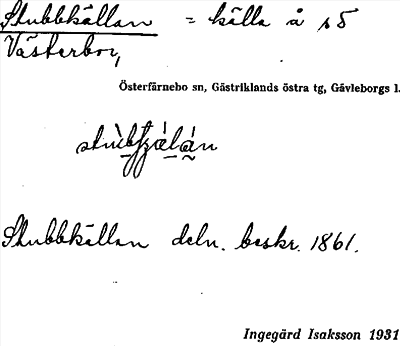 Stubbkällan = källa å s 5
Västerbor,
Östersfärnebo sn, Gästriklands östra tg, Gävleborgs l.
Stubbkällan deln. beskr. 1861.
Ingegärd Isaksson 1931